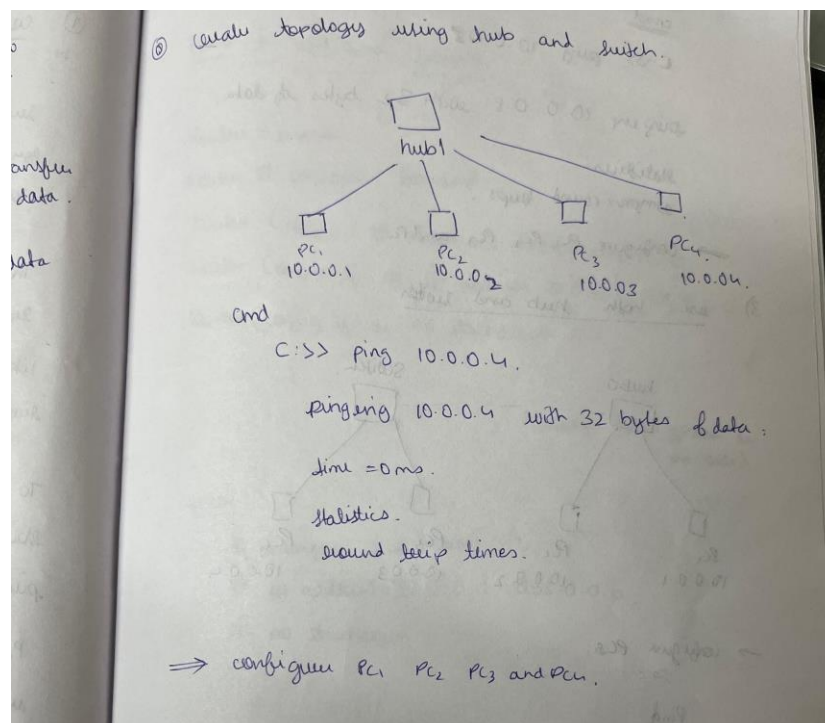 ansfer
data.
data
⓪ create topology using hub and switch.
hub1
PC1 PC2 PC3 PC4.
10.0.0.1 10.0.0.2 10.0.03 10.0.04.
cmd
C:>> ping 10.0.0.4.
pinging 10.0.0.4 with 32 bytes of data :
time = 0ms.
statistics.
round trip times.
⇒ configure PC1 PC2 PC3 and PC4.